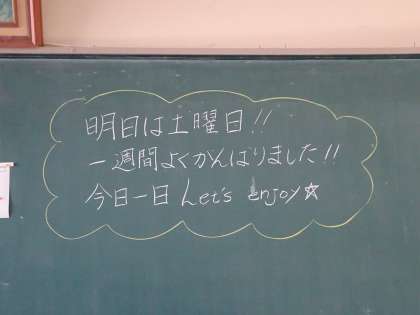 明日は土曜日!!
一週間よくがんばりました!!
今日一日 Let's enjoy☆